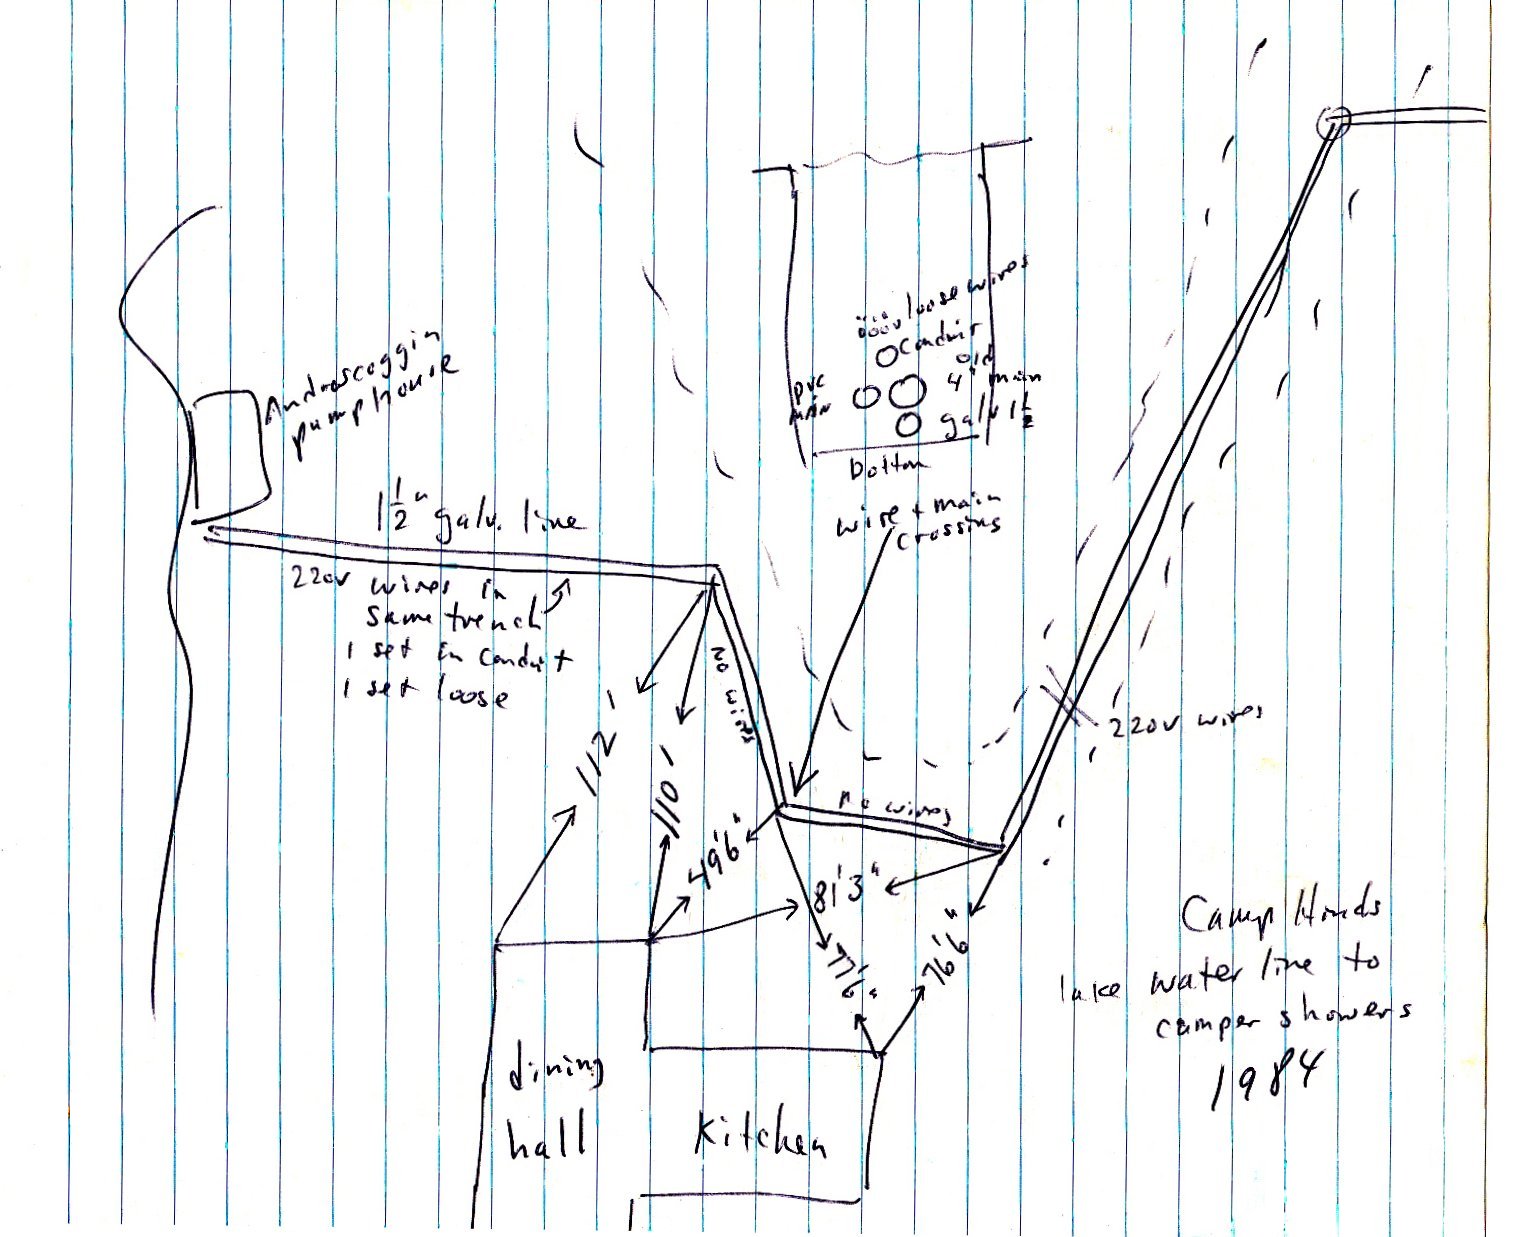 loose wires
Conduit
old
4" main
PVC
MAIN
galv 1½
bottom
wire + main
crossing
Androscoggin
pumphouse
1½" galv. line
220v wires in
same trench
1 set in conduit
1 set loose
No wires
no wires
220v wires
112'
110'
49'6"
81'3"
77'6"
76'6"
dining
hall
Kitchen
Camp Hinds
lake water line to
camper showers
1984